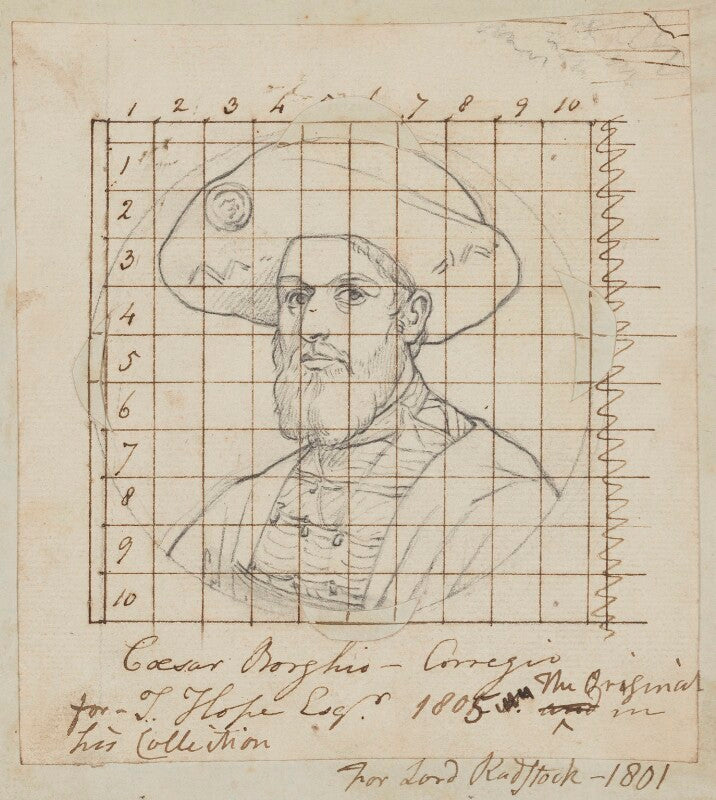 1 2 3 4 7 8 9 10
1
2
3
4
5
6
7
8
9
10
Cæsar Borghio – Corregio
for – T. Hope Esqr. 1805 The Original in
his Collection
For Lord Radstock – 1801